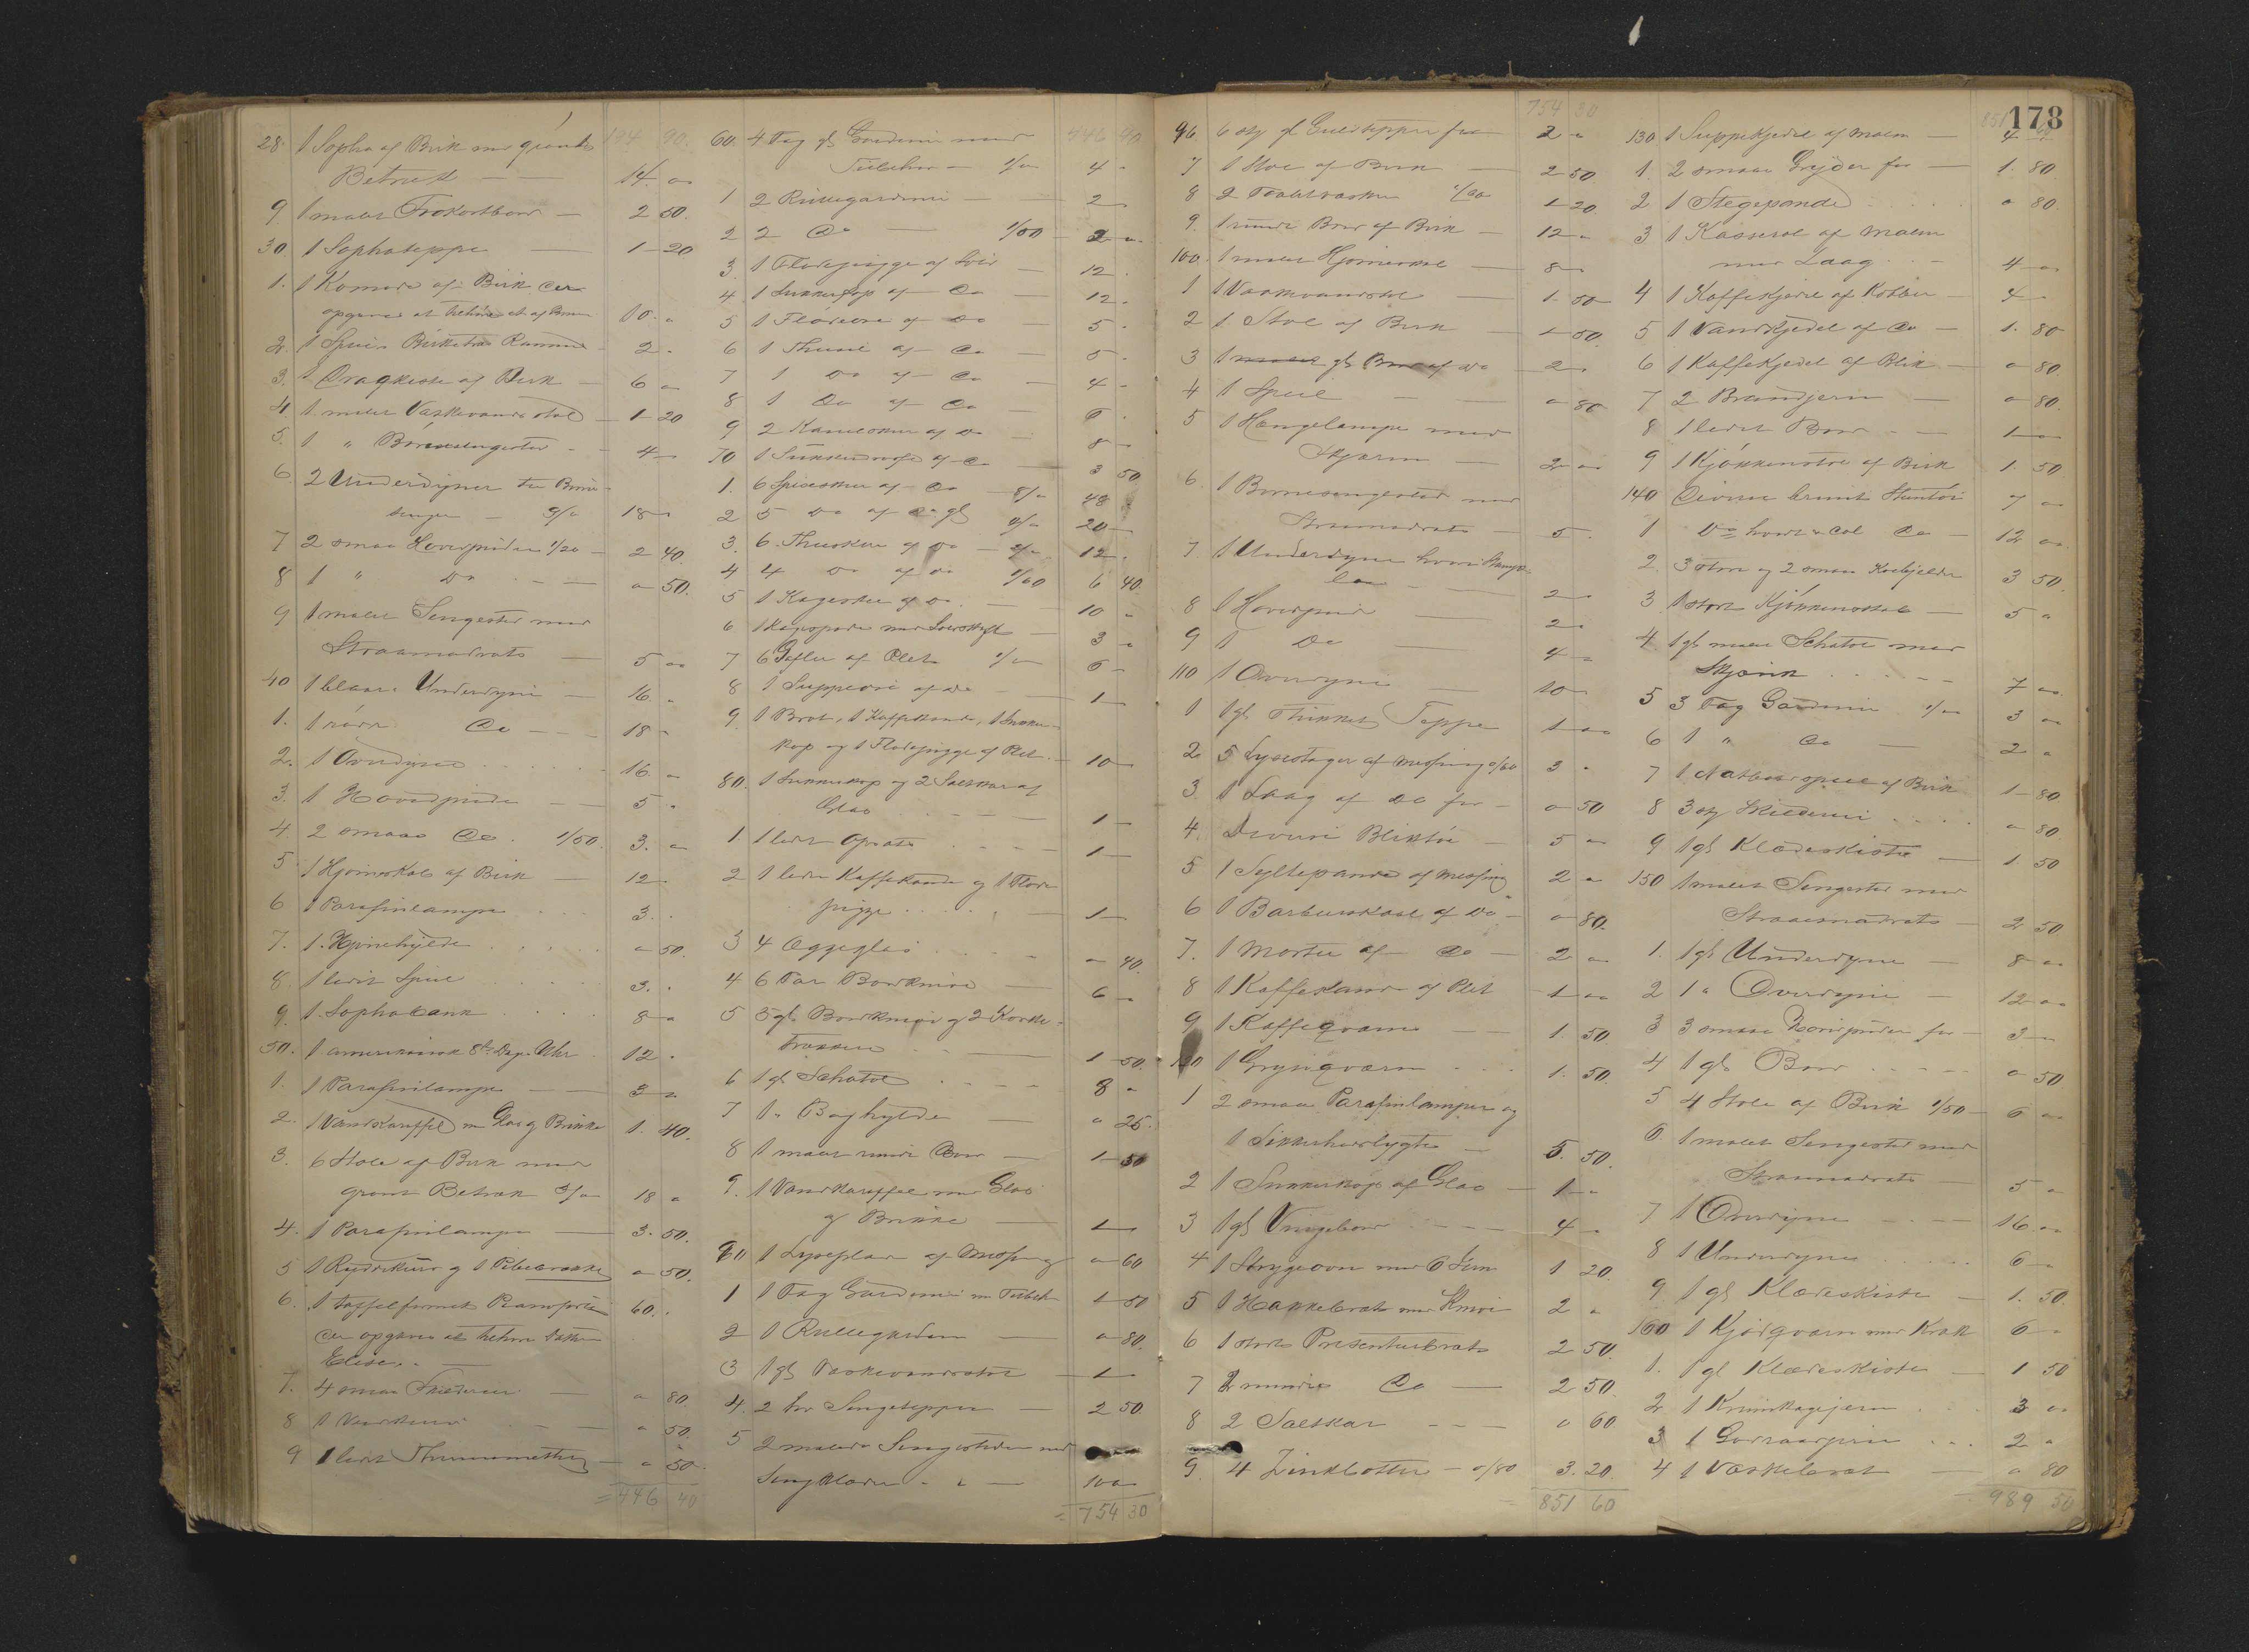 184 90.
28 1 Sopha af Birk med grønt
Betræk — — 14. "
9 1 malet Frokostbord — 2 50.
30 1 Sophateppe 1 20
1. 1 Komode af Birk der
opgaves at tilhøre
10. "
2. 1 Speil i Birketræs Ramme 2 "
3. 1 Dragkiste af Birk — 6 "
4 1 malet Vaskevandsstol 1 20
5. 1 " Børnesengested 4 "
6 2 Underdyner til Børne-
senge — 9/" 18 "
7 2 smaa Hovedpuder 1/20 — 2 40.
8 1 " Do — — " 50.
9 1 malet Sengested med
Straamadrats — 5 "
40 1 blaar. Underdyne — 16 "
1. 1 Do — — 18 "
2. 1 Overdyne 16. "
3. 1 Hovedpude — 5 "
4. 2 smaa Do. 1/50. 3. "
5 1 Hjørneskab af Birk — 12.
6 1 Parafinlampe 3.
7. 1. Hjørnehylde " 50.
8. 1 lidet Speil 3.
9. 1. Sophabænk 8 "
50. 1 amerikansk 8te Dags Uhr 12 "
1. 1 Parafinlampe — 3 "
2. 1 Vandkaraffel m Glas og Brikke 1. 40.
3. 6 Stole af Birk med
grønt Betræk 3/" 18 "
4. 1 Parafinlampe — 3. 50.
5 1 og 1 " 50.
6. 1 taffelformet Pianoforte 60.
der opgaves at tilhøre Datter
Elise. —
7. 4 smaa Skilderier — " 80
8 1 — " 50.
9 1 lidet Thermometer — " 50
= 446 40
446 40
60. 4 Fag gl Gardiner med
Tilbehør — 1/" 4 "
1 2 Rullegardiner — 2 "
2 2 Do — 1/50 3 "
3. 1 Flødemugge af Sølv — 12 "
4. 1 Sukkerkop af Do — 12 "
5 1 Flødeske af Do 5 "
6 1 Thesil af Do — 5 "
7 1 Do af Do — 4 "
8 1 Do af Do 6 "
9 2 af Do 8 "
70 1 af Do 3 50
1. 6 Spiseskeer af Do — 8/" 48 "
2 5 Do af Do gl 4/" 20 "
3. 6. Theskeer af Do — 2/" 12 "
4 4 Do af Do 1/60 6 40.
5 1 Kageske af Do. — 10 "
6 1 Kagespade med Sølvskaft — 3 "
7 6 Gafler af Plet 1/" 6 "
8 1 Suppeøse af Do — 1 "
9 1 Bræt, 1 Kaffekande, 1 Sukker-
kop og 1 Flødemugge af Plet. 10 "
80. 1 Sukkerkop og 2 Saltkar af
Glas 1 "
1 1 lidet Opsats 1 "
2 1 liden Kaffekande og 1 Fløde-
mugge 1 "
3 4 Æggeglas " 40.
4 6 Par Bordknive — 6 "
5 5 gl. Bordknive og 2 Korke-
trækkere — 1 50.
6 1 gl Schatol 8 "
7 1 " Boghylde — " 25.
8 1 malet rundt Bord — 1 50
9. 1 Vandkaraffel med Glas
og Brikke — 1 "
90 1 af Messing — " 60
1 1 Fag Gardiner m Tilbeh 1 50
2 1 Rullegardin — " 80.
3 1 gl Vaskevandsstol — 1 "
4. 2 hv Sengetepper — 2 50.
5 2 malede Sengesteder med
Sengklæder 10 "
= 754 30
754 30
96. 6 stk gl Gulvtepper for 2 "
7 1 Stol af Birk — 2 50
8 2 1/60 1 20
9. 1 rundt Bord af Birk — 12 "
100. 1 malet Hjørneskab — 8 "
1 1 Vaskevandsstol — 1. 50
2 1. Stol af Birk 1 50.
3 1 gl af Do 2 "
4 1 Speil — " 80
5 1 Hængelampe med
Skjærm — 2 "
6. 1 Børnesengested med
Straamadrats — 5 "
7 1 Underdyne hvori
2 "
8 1 Hovedpude — 2 "
9 1 Do — 4 "
110 1 Overdyne — 10 "
1 1 gl Teppe 1 "
2 5 Lysestager af Messing "/60 3 "
3. 1 Laag af Do for — " 50
4. Diverse Bliktøi — 5 "
5 1 Syltepande af Messing 2 "
6 1 Barbeerskaal af Do — " 80.
7. 1 Morter af Do — 2 "
8 1 Kaffekande af Plet — 1 "
9 1 Kaffeqværn — 1. 50
120 1 Grynqværn 1. 50.
1 2 smaa Parafinlamper og
1 Sikkerhedslygte — 5. 50.
2 1 Sukkerkop af Glas — 1 "
3 1 gl Vringebord 4 "
4 1 Strygeovn med 6 Jern 1 20.
5 1 Hakkebræt med Kniv 2 "
6 1 stort Presenteerbræt 2 50.
7 2 mindre Do — 2 50.
8 2 Saltkar — " 60
9. 4 Zinkbøtter — "/80 3. 20.
= 851 60
178
130 1 Suppekjedel af Malm — 4
1. 2 smaa Gryder for — 1. 80.
2 1 Stegepande " 80
3 1 Kasserol af Malm
med Laag 4 "
4 1 Kaffekjedel af Kobber — 4 "
5 1 Vandkjedel af Do — 1. 80
6 1 Kaffekjedel af Blik " 80.
7 2 Brandjern — " 80.
8 1 lidet Bord — 1 "
9 1 Kjøkkenstol af Birk 1. 50.
140 Diverse brunt Stentøi 7 "
1 Do hvidt & Do 12 "
2 3 store og 2 smaa 3 50.
3 1 stort Kjøkkenskab — 5 "
4 1 gl malet Schatol med
Skjænk 7 "
5 3 Fag Gardiner 1/" 3 "
6 1 " Do — 2 "
7 1 af Birk 1 80
8 3 stk Skilderier " 80.
9 1 gl Klædeskiste — 1. 50
150 1 malet Sengested med
Straamadrats — 2 50
1. 1 gl Underdyne — 8 "
2 1 " Overdyne — 12 "
3 3 smaa Hovedpuder for — 3 "
4 1 gl Bord " 50
5 4 Stole af Birk 1/50 — 6 "
6 1 malet Sengested med
Straamadrats — 5 "
7 1 Overdyne — 16 "
8 1 Underdyne 6 "
9. 1 gl Klædeskiste — 1. 50.
160 1 Kjødqværn med Krak 6 "
1. 1 gl Klædeskiste — 1 50
2 1 Krumkagejern 3 "
3 1 Goraadjern 2 "
4 1 Vaskebræt — " 80
= 989 50